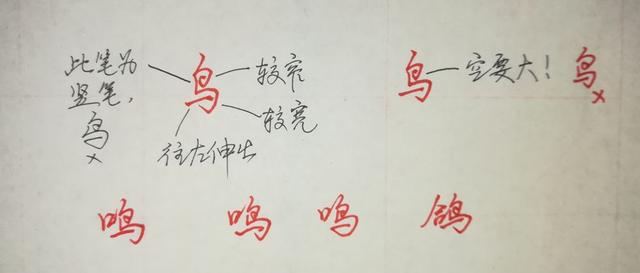 此笔为
竖笔,
鸟
×
鸟
较窄
较宽
往左伸出
鸟 空要大! 鸟
×
鸣 鸣 鸣 鸽